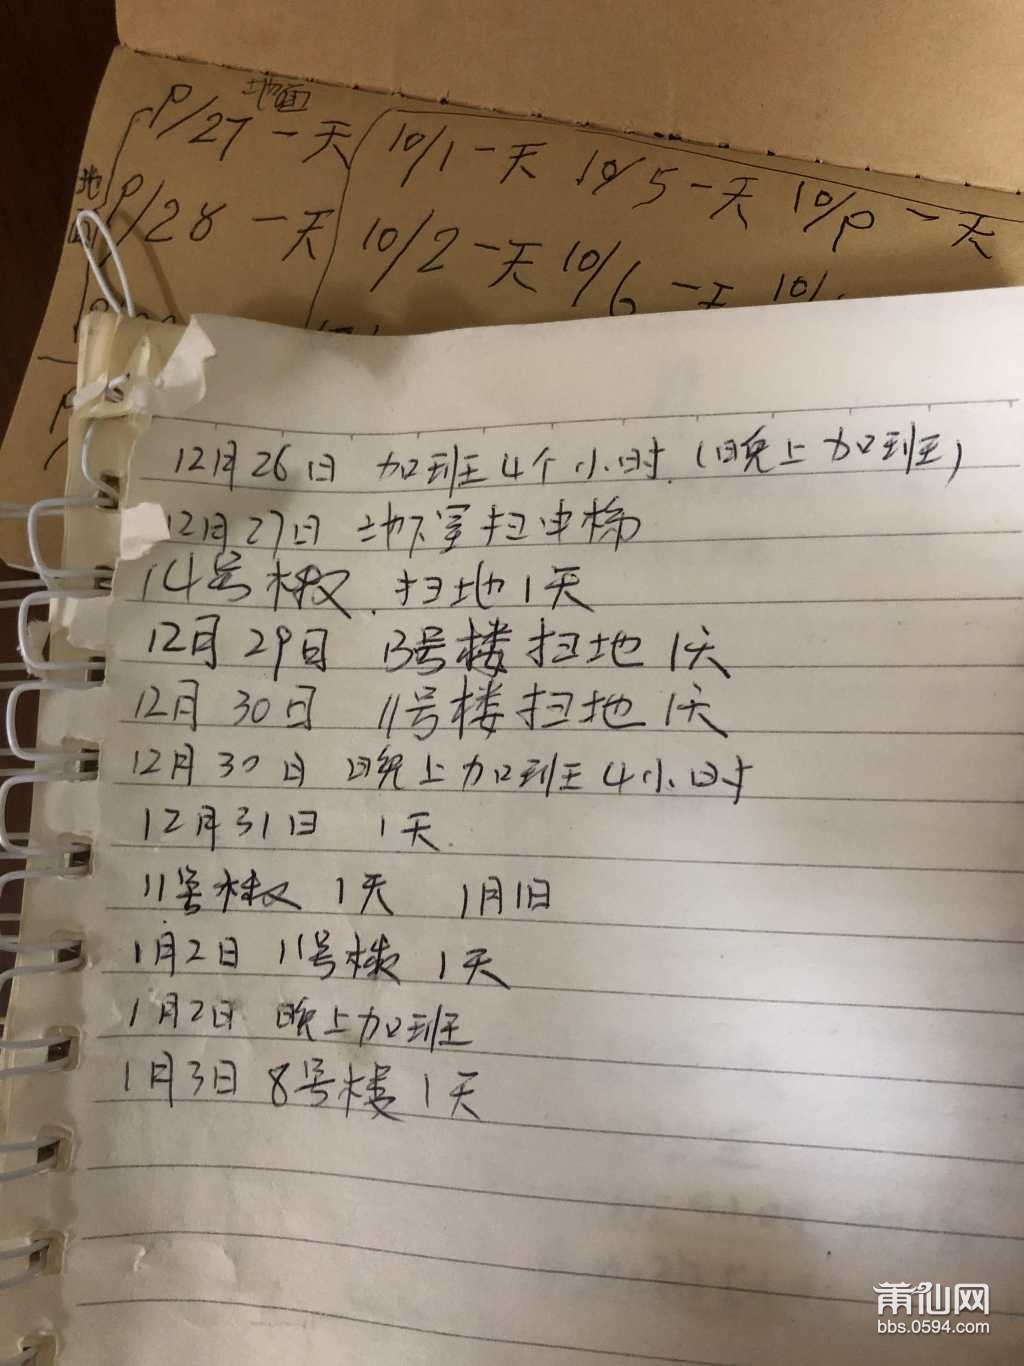 地面
9/27 一天 10/1 一天 10/5 一天 10/9 一天
地面 9/28 一天 10/2 一天 10/6 一天 10/
12月26日 加班4个小时.(晚上加班)
12月27日 地下室扫电梯
14号楼.扫地1天
12月29日 13号楼扫地1天
12月30日 11号楼扫地1天
12月30日 晚上加班4小时
12月31日 1天.
11号楼 1天 1月1日
1月2日 11号楼 1天
1月2日 晚上加班
1月3日 8号楼1天
莆仙网
bbs.0594.com